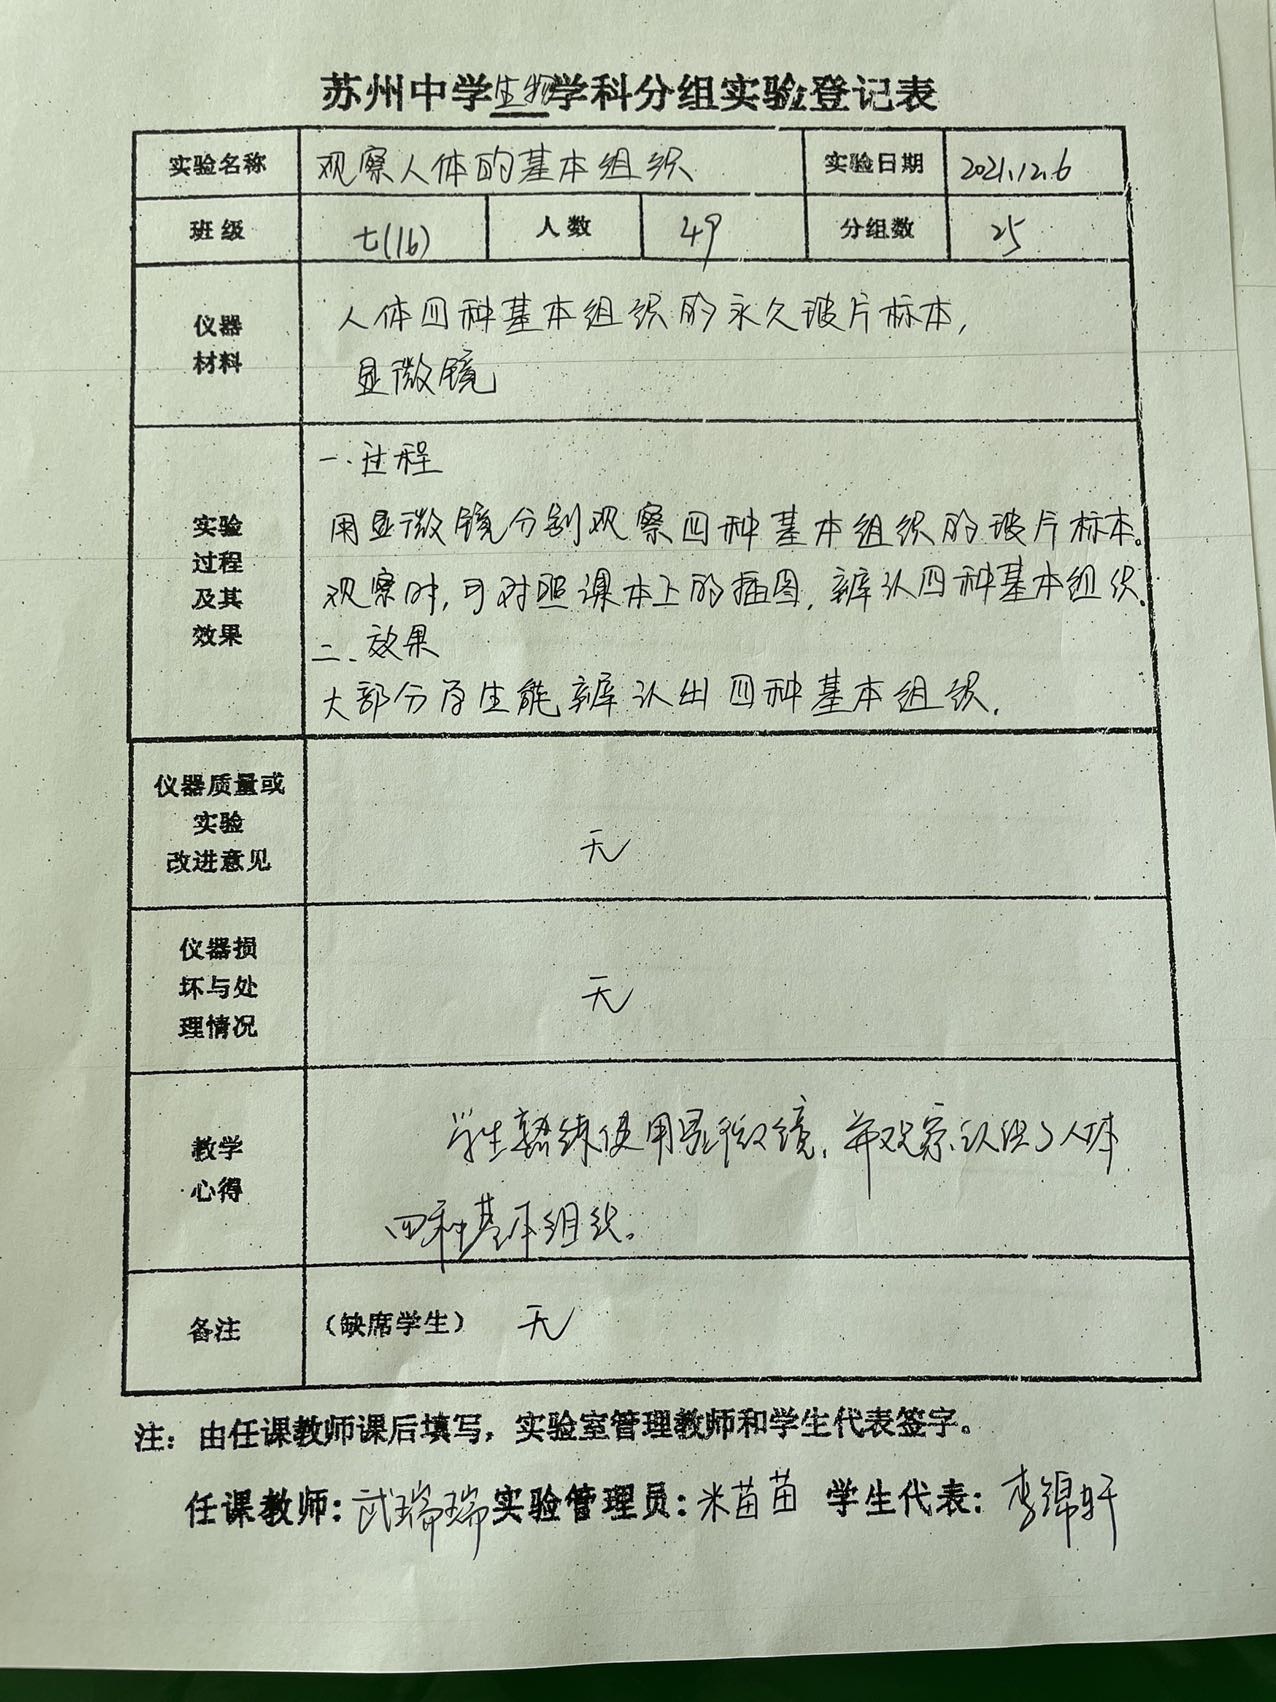 苏州中学生物学科分组实验登记表
实验名称 观察人体的基本组织 实验日期 2021.12.6
班级 七(16) 人数 49 分组数 25
仪器
材料
人体四种基本组织的永久玻片标本,
显微镜
实验
过程
及其
效果
一、过程
用显微镜分别观察四种基本组织的玻片标本。
观察时,可对照课本上的插图,辨认四种基本组织.
二、效果
大部分学生能辨认出四种基本组织.
仪器质量或
实验
改进意见
无
仪器损
坏与处
理情况
无
教学
心得
学生熟练使用显微镜,并观察认识了人体
四种基本组织。
备注 (缺席学生) 无
注:由任课教师课后填写,实验室管理教师和学生代表签字。
任课教师:武瑞瑞 实验管理员:米苗苗 学生代表:李锦轩